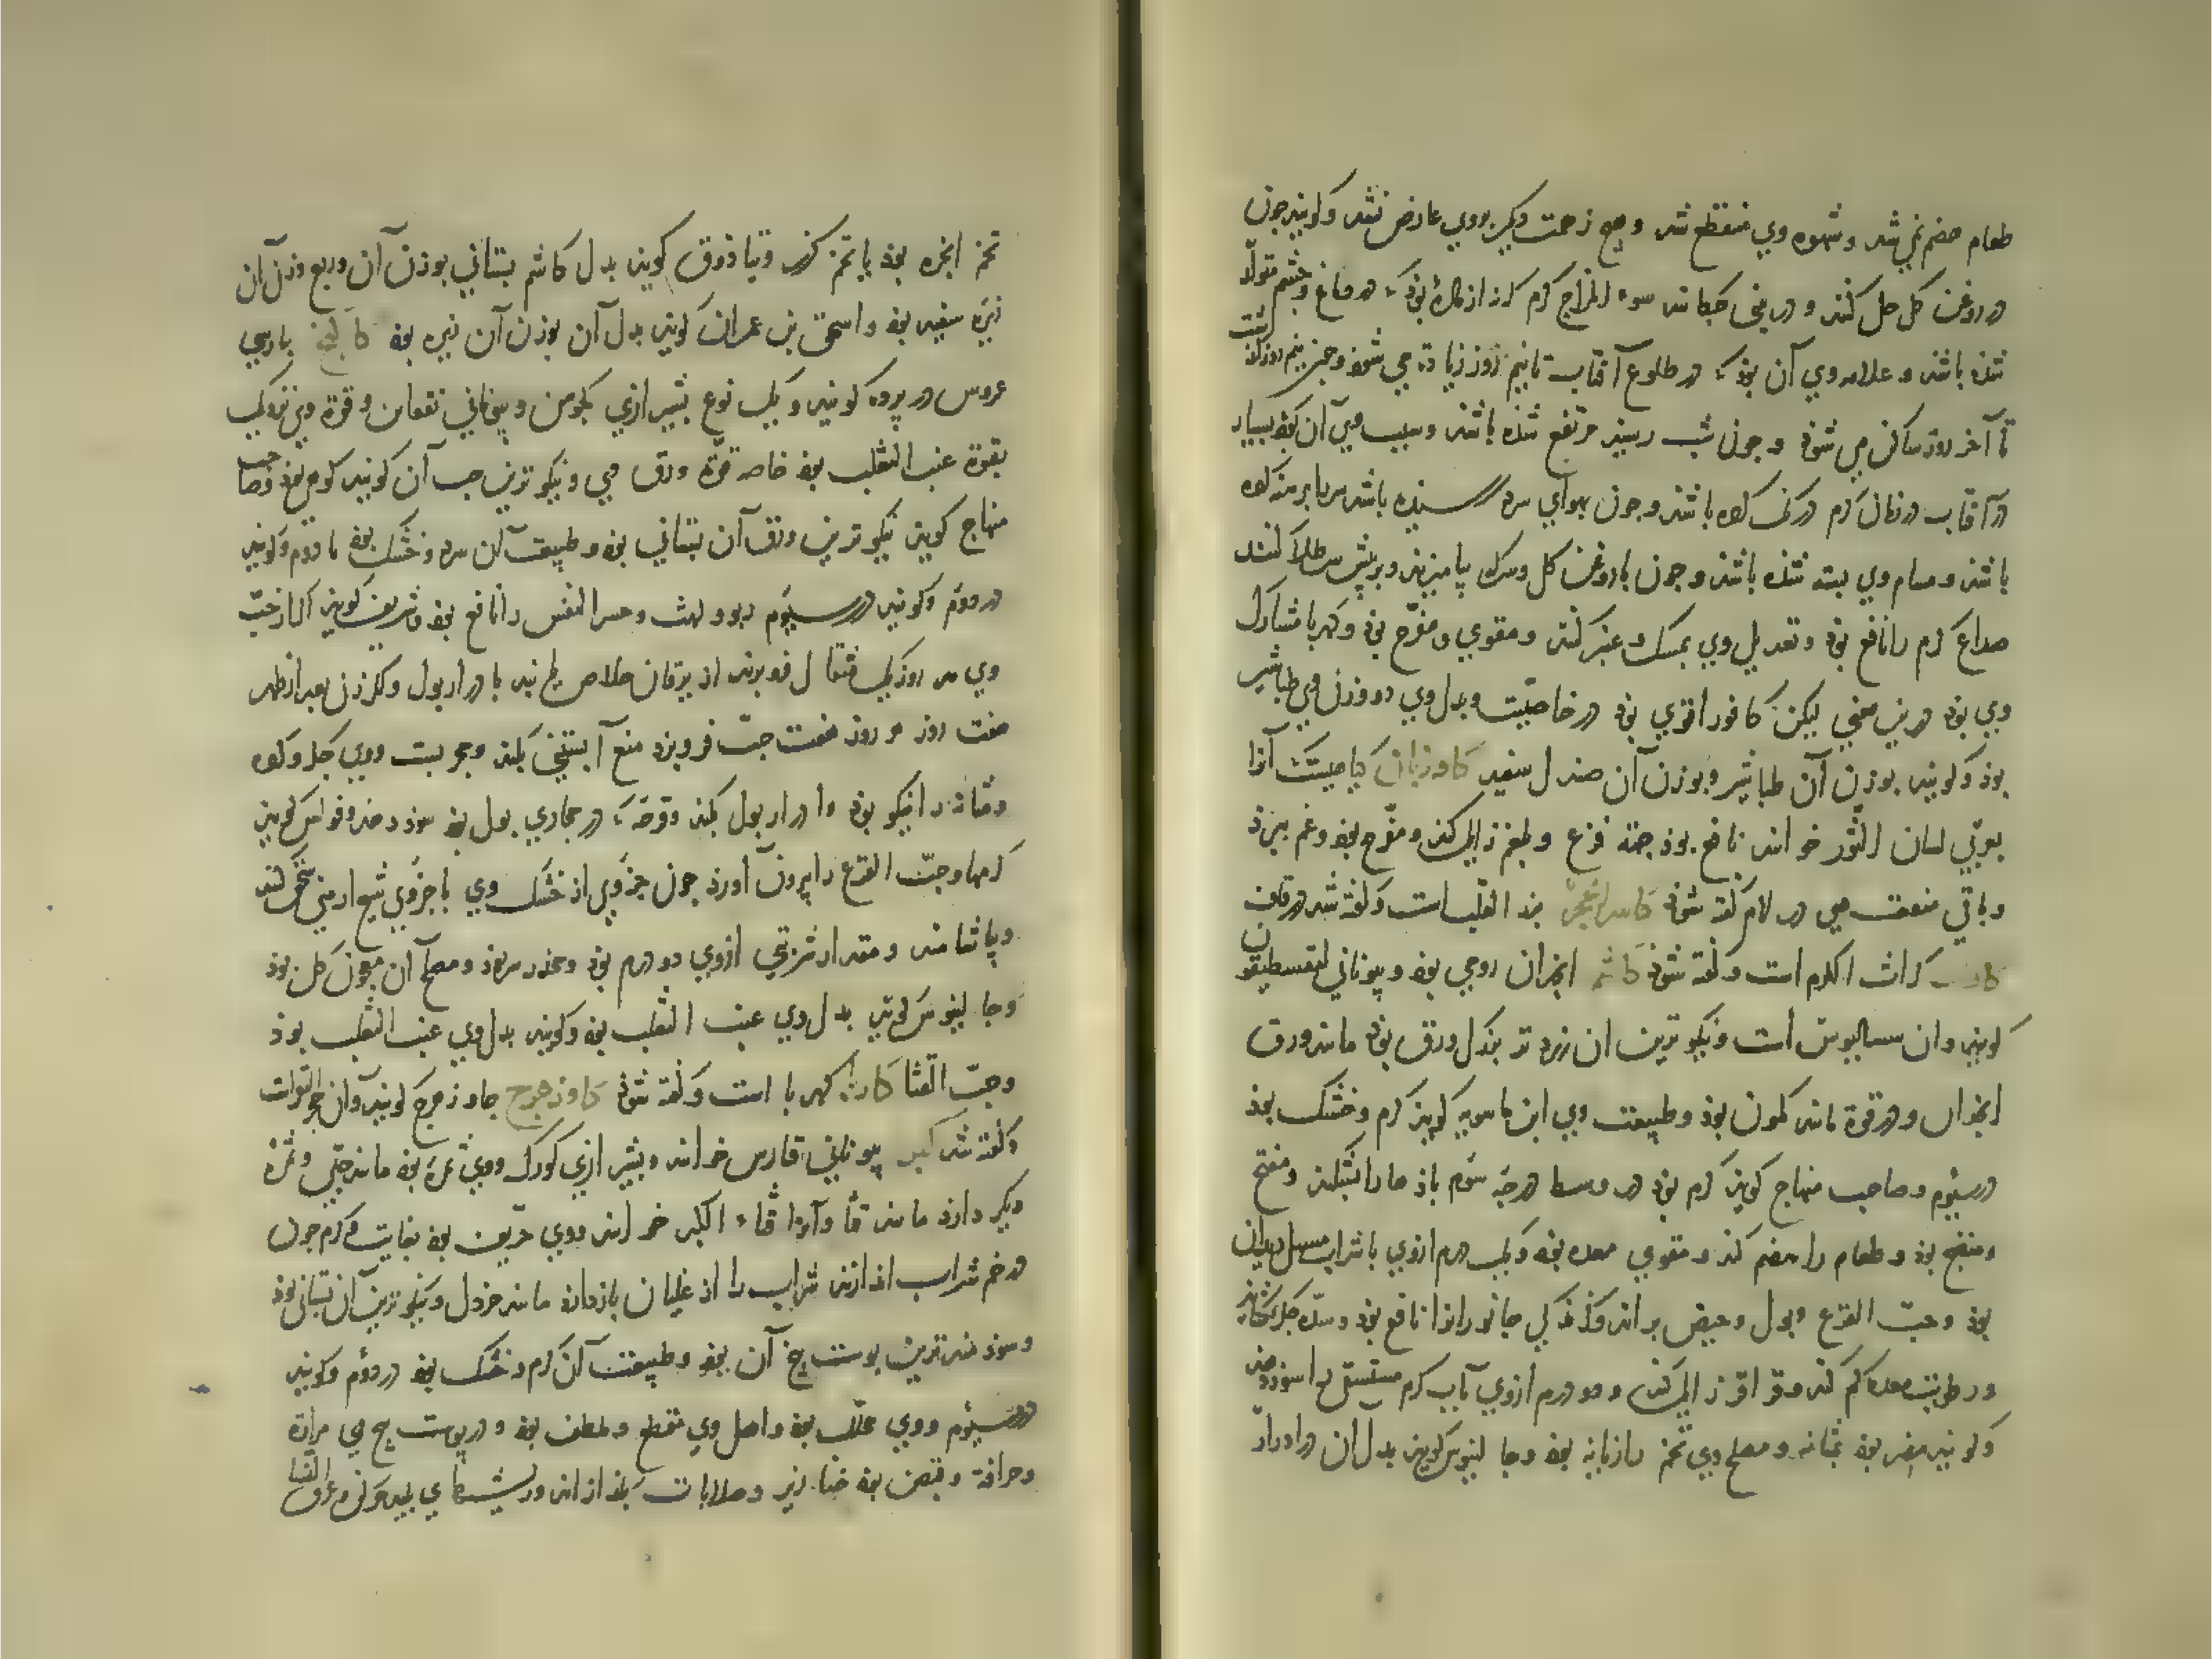 طعام هضم نمی شد و شهوه وی منقطع شد و هیچ زحمت دیکر بروی عارض نشد و کویند جون
در روغن کل حل کنند و در بینی جکانند سوء المزاج کرم که از ماده بوذ که در دماغ و جشم متولد
شذه باشد و علامه وی آن بوذ که در طلوع آفتاب تا نیم روز زیادة می شوذ و جون نیم روز کذشت
تا آخر روز ساکن می شوذ و جون شب رسید مرتفع شذه باشد و سبب وی آن بوذ که بسیار
در آفتاب در زمان کرم درنک کرده باشد و جون بهوای سرد رسیده باشد سر را برهنه کرده
باشد و مسام وی بسته شذه باشد و جون با روغن کل و سرکه بیامیزند و بر پیش سر طلا کنند
صداع کرم را نافع بوذ و تعدیل وی بمسک و عنبر کنند و مقوی و مفرح بوذ و کهربا مشارک
وی بوذ درین معنی لیکن کافور اقوی بوذ در خاصیت و بدل وی دو وزن وی طباشیر
بوذ و کویند بوزن آن طباشیر و بوزن آن صندل سفید کاوزبان کیاهیست آنرا
بعربی لسان الثور خوانند نافع بوذ جهة فزع و بلغم زایل کند و مفرح بوذ و غم ببرذ
و باقی منفعت وی در لام کفته شوذ بند القلب است و کفته شد در قاف
کراث الکرم است و کفته شوذ کاشم انجدان رومی بوذ و بیونانی لیغسطیقون
کویند و آن سسالیوس است و نیکوترین آن زرد تر بوذ کل ورق بوذ مانند ورق
انجدان و در قوة مانند کمون بوذ و طبیعت وی ابن ماسویه کوید کرم و خشک بوذ
در سیوم و صاحب منهاج کوید کرم بوذ در وسط درجه سوم باذها را بشکند و مفتح
و منضج بوذ و طعام را هضم کند و مقوی معده بوذ و یک درم ازوی با شراب مسهل دیدان
بوذ و حب القرع و بول و حیض براند و کزندکی جانورانرا نافع بوذ و سده جکر بکشاید
و رطوبت معده کم کند و قراقر زایل کند و دو درم ازوی بآب کرم مستسقی را سوذ دهد
و کویند مضر بوذ بمثانه و مصلح وی تخم رازیانه بوذ و جالینوس کوید بدل آن در ادرار
تخم انجره بوذ یا تخم کزر و تیاذوق کوید بدل کاشم بستانی بوزن آن و ربع وزن آن
زیره سفید بوذ و اسحق بن عمران کوید بدل آن بوزن آن زیره بوذ کاکنج بارسی
عروس در برده کویند و یک نوع بشیرازی کجومن و بیونانی و قوة وی نزدیک
بقوة عنب الثعلب بوذ خاصه قوة ورق وی و نیکوترین حب آن کویند کوهی بوذ و صاحب
منهاج کوید نیکوترین ورق آن بستانی بوذ و طبیعت آن سرد و خشک بوذ تا دوم و کویند
در دوم و کویند در سیوم ربو و لهث و عسر النفس را نافع بوذ و شریف کوید اکر از حب
وی سه روز یک مثقال فرو برند از یرقان خلاص یابند با درار بول و اکر زن بعد از طهر
هفت روز هر روز هفت حب فرو برد منع آبستنی بکند و مجربست و وی جکر و کرده
و مثانه را نیکو بوذ و ادرار بول بکند و قرحه که در مجاری بول بوذ سوذ دهد و فولس کوید
کرمها و حب القرع را بیرون آورذ جون جزوی از خشک وی با جزوی شیح ارمنی سحق کنند
و بیاشامند و مقدار شربتی ازوی دو درم بوذ و مخدر سر بوذ و مصلح آن معجون کل بوذ
و جالینوس کوید بدل وی عنب الثعلب بوذ و کویند بدل وی عنب الثعلب بوذ
و حب القثا کاربا کهربا است و کفته شوذ کاوزهرج جاوزهرج کویند و آن حجر التوراست
و کفته شد کبر بیونانی قبارس خوانند و بشیرازی کورک و وی ثمره بوذ مانند حبی و ثمره
دیکر دارذ مانند قثا و آنرا قثاء الکبر خوانند و وی حریف بوذ بغایت و کرم جون
در خم شراب اندازند شراب را از غلیان بازدارذ مانند خردل و نیکوترین آن بستانی بوذ
و سوذ مندترین بوست بیخ آن بوذ و طبیعت آن کرم و خشک بوذ در دوم و کویند
در سیوم و وی محلل بوذ و اصل وی مقطع و ملطف بوذ و در بوست بیخ وی مرارة
و حرافة و قبض بوذ خنازیر و صلابات بکذازاند و ریشهای بلید و عرق النسا